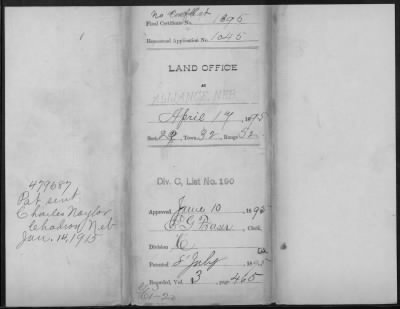 No Conflict
Final Certificate No. 1896
Homestead Application No. 1045
1
LAND OFFICE
AT
ALLIANCE, NEB.
April 17, 1895
Sect. 29, Town. 32, Range 52
Div. C, List No. 190
Approved June 10, 1895
Clerk,
Division C
Patented 8 July 1895
Recorded, Vol. 3, page 465
479687
Pat sent
Charles Naylor
Chadron Neb
Jan. 14, 1915